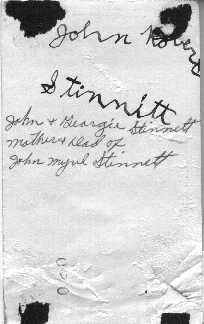 John Robert
Stinnitt
John & Georgia Stinnett
Mother & Dad of
John Myrl Stinnett